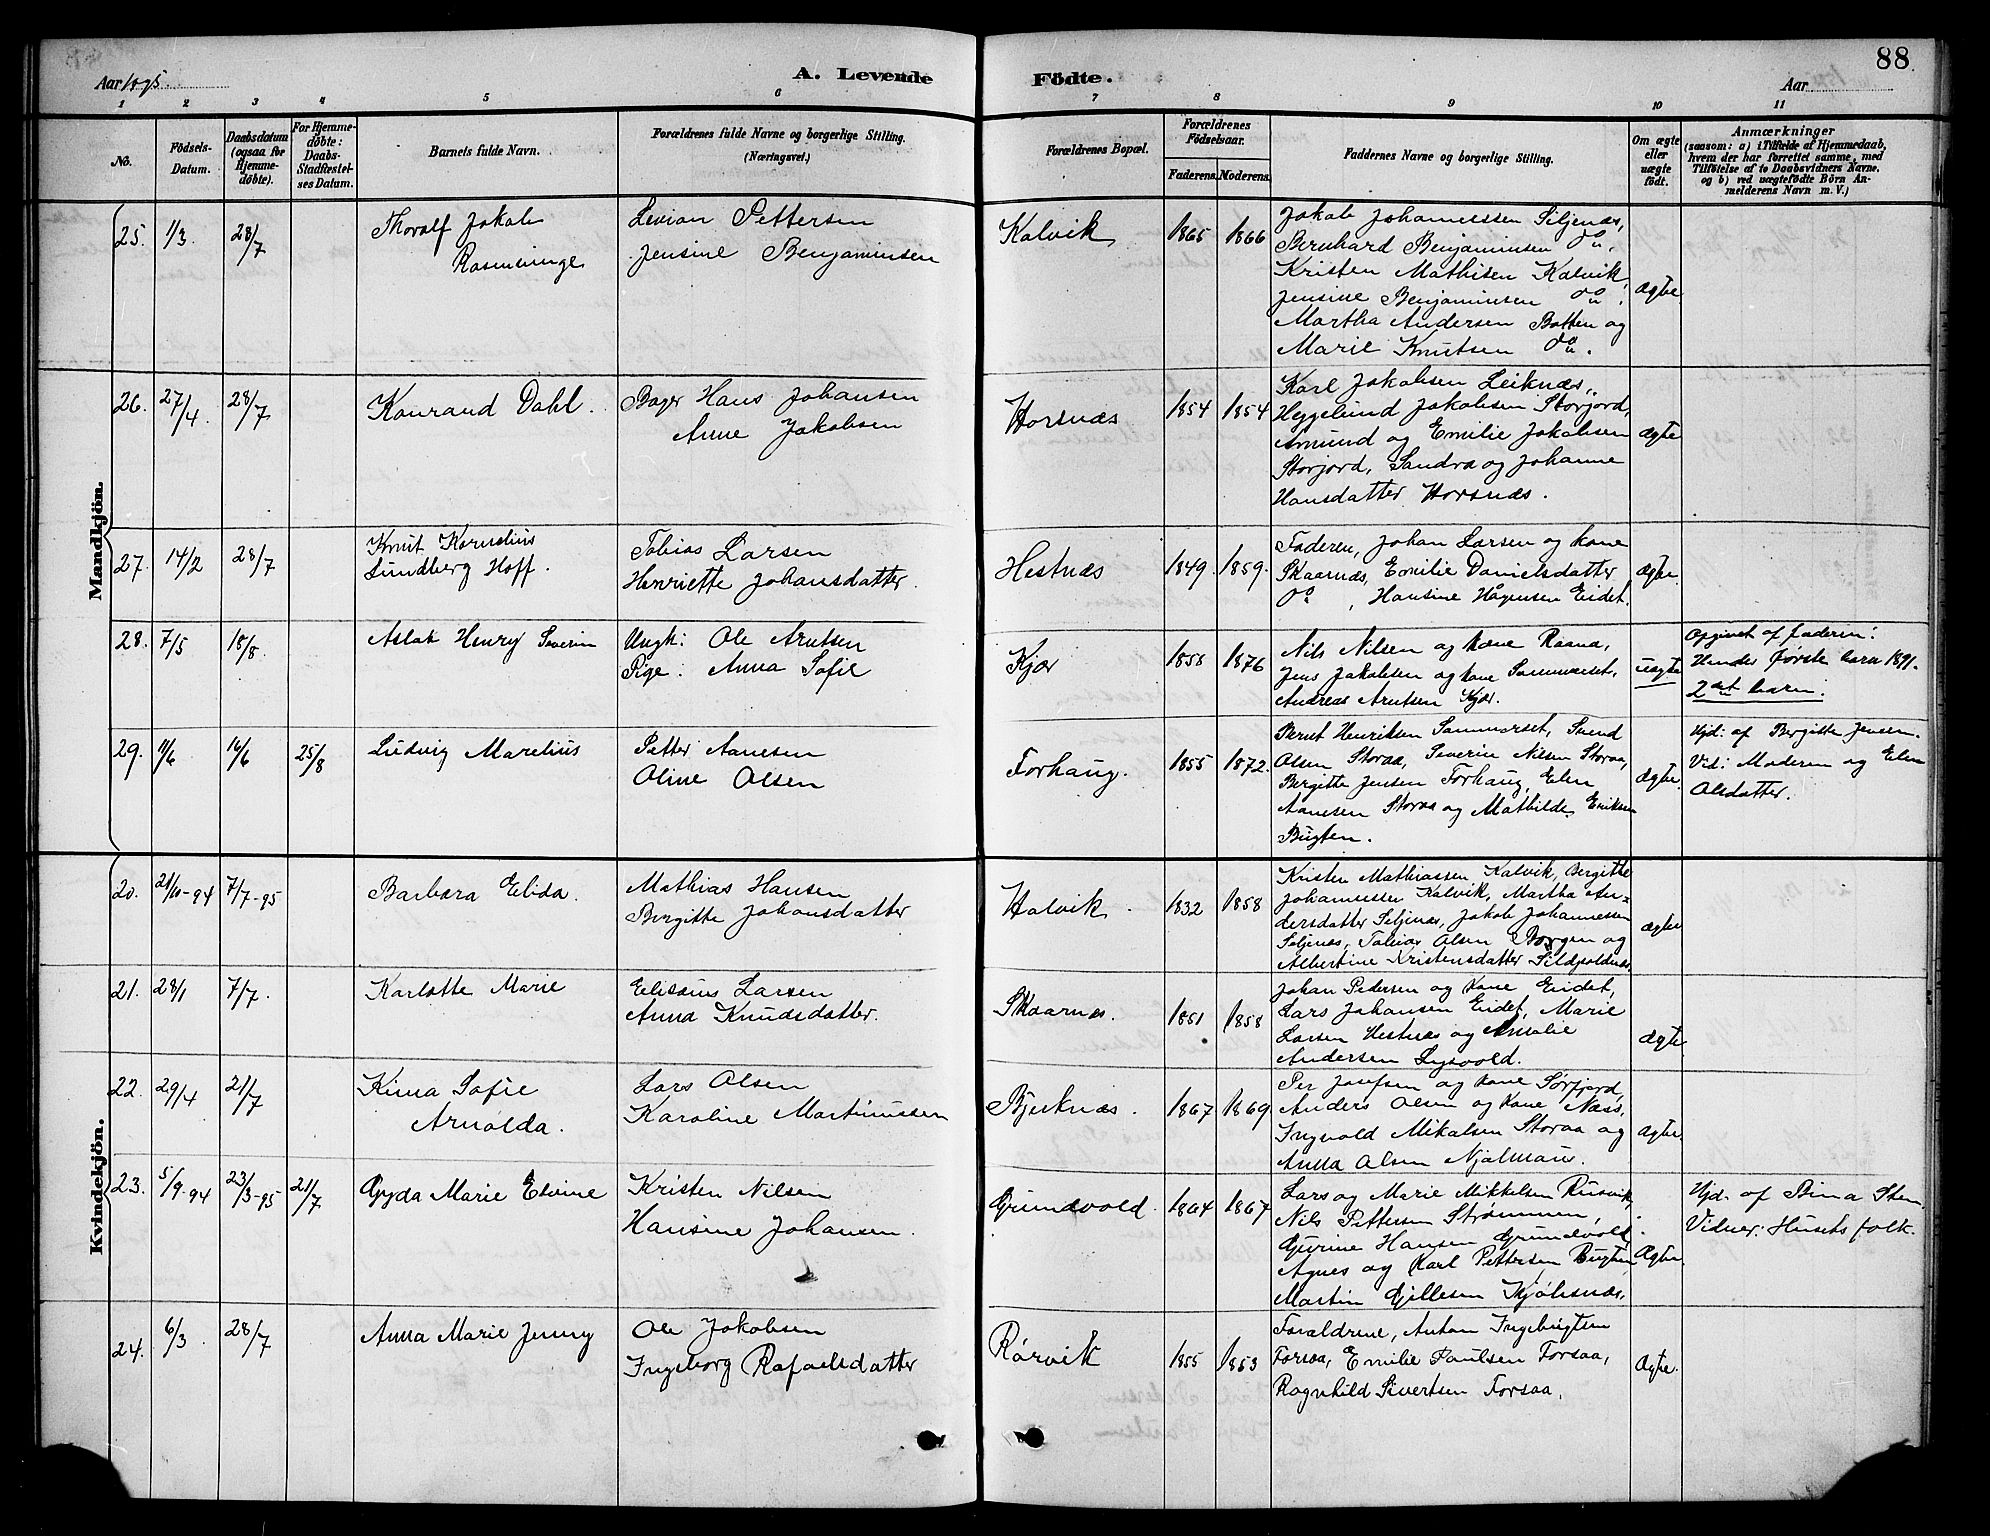 88
Aar 1895.
A. Levende
Födte.
Aar
1 2 3 4 5 6 7 8 9 10 11
No.
Födsels-
Datum.
Daabsdatum
(ogsaa for
Hjemme-
döbte).
For Hjemme-
döbte:
Daabs-
Stadfæstel-
ses Datum.
Barnets fulde Navn.
Forældrenes fulde Navne og borgerlige Stilling.
(Næringsvei.)
Forældrenes Bopæl.
Forældrenes
Födselsaar.
Faderens. Moderens.
Faddernes Navne og borgerlige Stilling.
Om ægte
eller
uægte
født.
Anmærkninger
(saasom: a) i Tilfælde af Hjemmedaab,
hvem der har forrettet samme, med
Tilføielse af to Daabsvidners Navne,
og b) ved uægtefödte Börn An-
melderens Navn m. V.)
Mandkjön.
25. 1/3 28/7
Thoralf Jakob
Levian Pettersen
Jensine Benjaminsen
Kalvik 1865 1866
Jakob Johannessen Siljenæs,
Bernhard Benjaminsen do,
Kristen Mathisen Kalvik,
Jensine Benjaminsen do,
Martha Andersen Botten og
Marie Knutsen do.
ægte
26. 27/4. 28/7
Konrand Dahl.
Bager Hans Johansen
Anne Jakobsen
Horsnæs 1854 1854
Karl Jakobsen Leiknæs,
Heggelund Jakobsen Storjord,
Amund og Emilie Jakobsen
Storjord, Sandra og Johanne
Hansdatter Horsnæs.
ægte
27. 14/2 28/7
Knut Kornelius
Lundberg Hoff.
Tobias Larsen
Henriette Johansdatter.
Hestnæs 1849. 1859.
Faderen, Johan Larsen og kone
Skaarnæs, Emilie Danielsdatter
do, Hansine Hågensen Eidet.
ægte.
28. 7/5 18/8.
Aslak Henry Severin
Ungk: Ole Arntsen
Pige: Anna Sofie
Kjær 1858 1876
Nils Nilsen og kone Raana,
Jens Jakobsen og kone Sommerset,
Andreas Arntsen Kjær.
uægte
Opgivet af faderen:
Hendes første barn 1891.
2et barn.
29. 11/6 16/6 25/8
Ludvig Marelius
Petter Aanesen
Oline Olsen
Forhaug. 1855 1872.
Bernt Henriksen Sommerset, Svend
Olsen Storaa, Severin Nilsen Storaa,
Bergitte Jensen Forhaug, Elen
Aanesen Storaa og Mathilde Eriksen
Bugten.
ægte.
Hjd: af Bergitte Jensen.
Vid: Moderen og Elen
Olsdatter.
Kvindekjön.
20. 21/10-94 7/7-95
Barbara Elida.
Mathias Hansen
Bergitte Johansdatter
Halvik. 1832 1858
Kristen Mathiassen Kalvik, Bergitte
Johannessen Kalvik, Martha An-
dersdatter Siljenæs, Jakob Johannessen
Siljenæs, Tobias Olsen Borgen og
Albertine Kristensdatter
ægte
21. 28/1 7/7.
Karlotte Marie
Elisæus Larsen
Anna Knudsdatter.
Skaarnæs. 1851 1858
Johan Pedersen og kone Eidet,
Lars Johansen Eidet, Marie
Larsen Hestnæs og Amalie
Andersen Lysvold.
ægte
22. 29/4 21/7
Kima Sofie
Arnolda.
Lars Olsen
Karoline Martinussen
Bjerknæs. 1867 1869.
Per Josefsen og kone Sørfjord,
Anders Olsen og kone Næss,
Ingvold Mikalsen Storaa og
Anna Olsen
ægte.
23. 5/9-94 23/3-95 21/7
Gyda Marie Elvine
Kristen Nilsen
Hansine Johansen.
Grundvold. 1864 1867
Lars og Marie Mikkelsen Rusvik,
Nils Pettersen Strømmen,
Gurine Hansen Grundvold,
Agnes og Karl Pettersen Bugten,
Martin Gjillesen Kjølsnæs.
ægte.
Hjd. af Stina Sten
Vidner: Husets folk.
24. 6/3 28/7
Anna Marie Jenny
Ole Jakobsen
Ingeborg Rafaelsdatter
Rørvik 1855 1853
Forældrene, Anton Ingebrigtsen
Forsaa, Emilie Paulsen Forsaa,
Ragnhild Sivertsen Forsaa.
ægte.